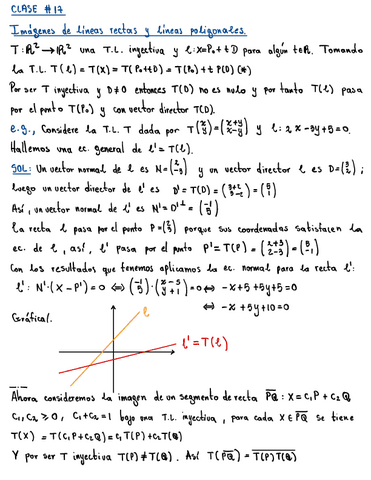 CLASE #17
Imágenes de líneas rectas y líneas poligonales.
T: ℝ² → ℝ² una T.L. inyectiva y l: X=P₀+tD para algún t∈ℝ. Tomando
la T.L. T(l) = T(X) = T(P₀+tD) = T(P₀) + t T(D) (*)
Por ser T inyectiva y D≠0 entonces T(D) no es nulo y por tanto T(l) pasa
por el punto T(P₀) y con vector director T(D).
e.g., Considere la T.L. T dada por T(x y) = (x+y x-y) y l: 2x-3y+5=0.
Hallemos una ec. general de l' = T(l).
SOL: Un vector normal de l es N=(2 -3) y un vector director l es D=(3 2);
luego un vector director de l' es D'=T(D) = (3+2 3-2) = (5 1)
Así, un vector normal de l' es N'=D'⊥ = (-1 5)
La recta l pasa por el punto P=(2 3) porque sus coordenadas satisfacen la
ec. de l, así, l' pasa por el punto P'=T(P) = (2+3 2-3) = (5 -1)
Con los resultados que tenemos aplicamos la ec. normal para la recta l':
l': N'·(X-P')=0 ⇔ (-1 5)·(x-5 y+1)=0 ⇔ -x+5+5y+5=0
⇔ -x+5y+10=0
Gráfica:
l
l'=T(l)
Ahora consideremos la imagen de un segmento de recta PQ: X=C₁P+C₂Q
C₁,C₂ ⩾ 0, C₁+C₂=1 bajo una T.L. inyectiva, para cada X∈PQ se tiene
T(X) = T(C₁P+C₂Q) = C₁T(P)+C₂T(Q)
Y por ser T inyectiva T(P)≠T(Q). Así T(PQ) = T(P)T(Q)